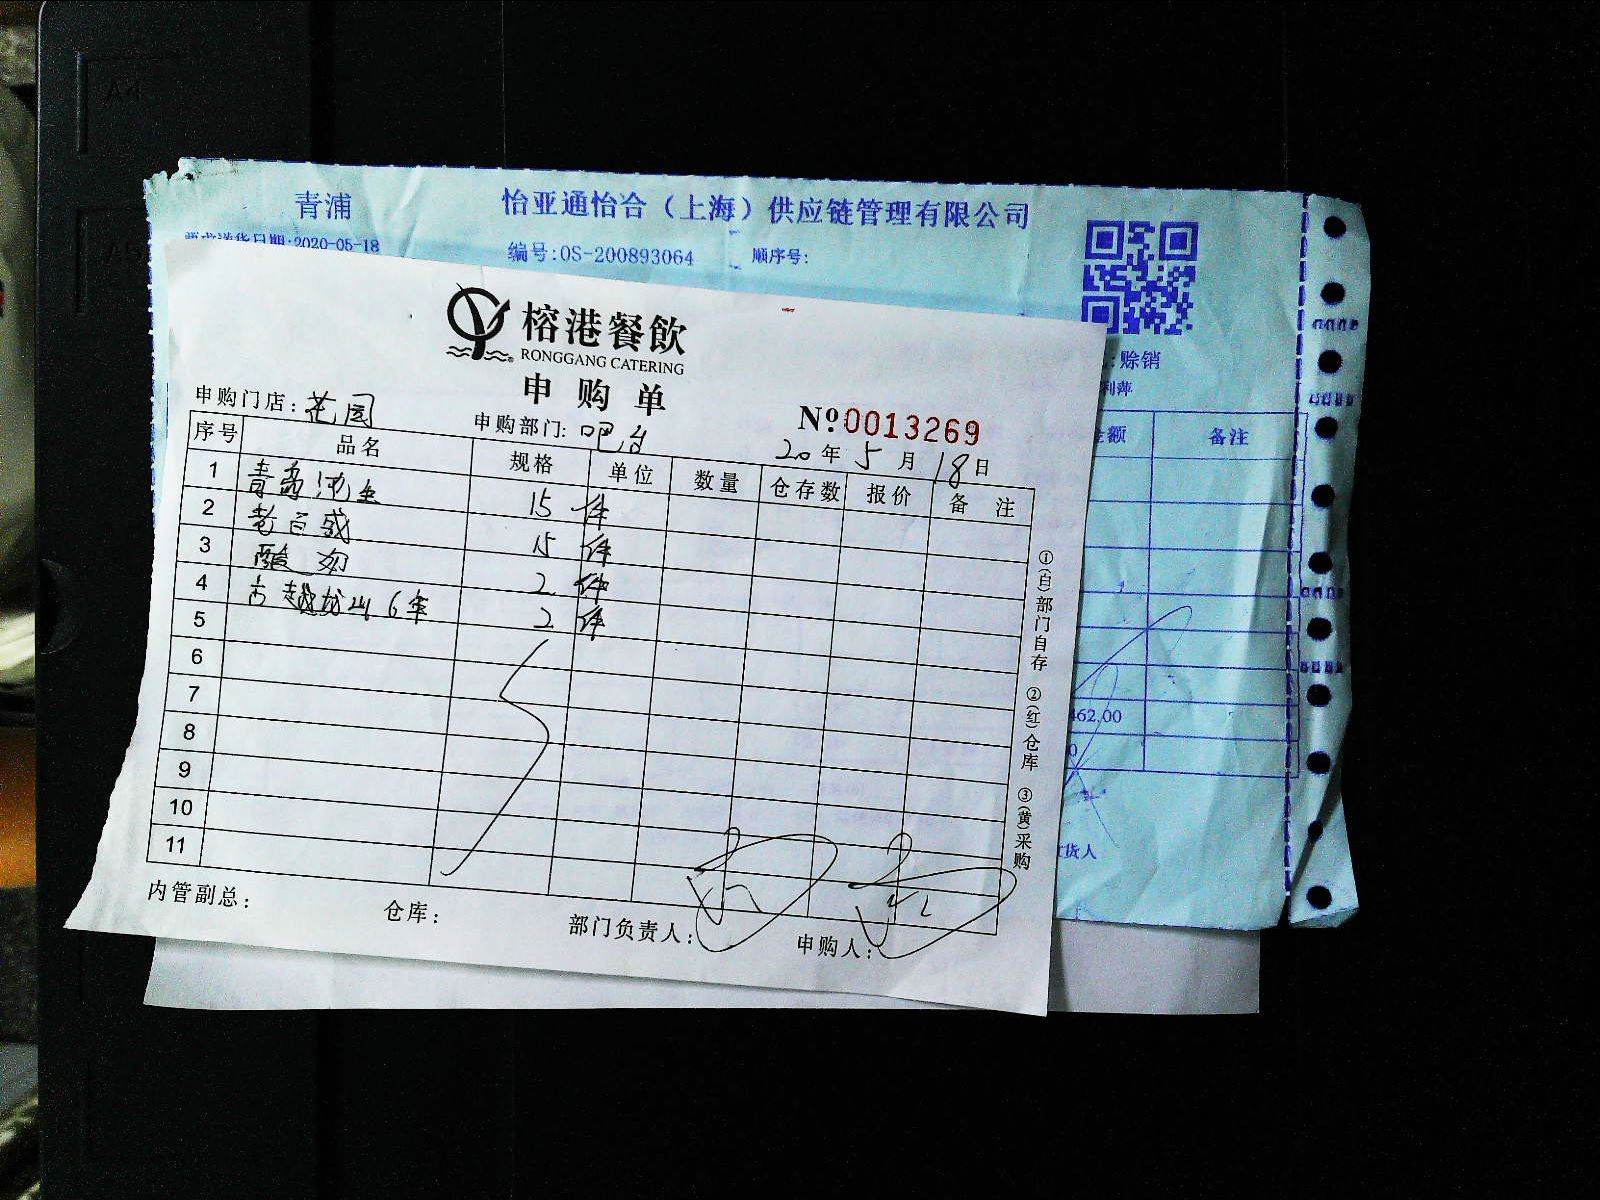 青浦
怡亚通怡合（上海）供应链管理有限公司
要求送货日期:2020-05-18
编号:OS-200893064
顺序号:
:赊销
利萍
金额 备注
462.00
0
货人
榕港餐飲
RONGGANG CATERING
申购单
申购门店: 花园
申购部门: 吧台
№0013269
20年5月18日
序号 品名 规格 单位 数量 仓存数 报价 备注
1 青岛 15 件
2 老百威 15 件
3 酸奶 2 件
4 古越龙山6年 2 件
5
6
7
8
9
10
11
①(白)部门自存 ②(红)仓库 ③(黄)采购
内管副总: 仓库: 部门负责人: 申购人:
A4
A5